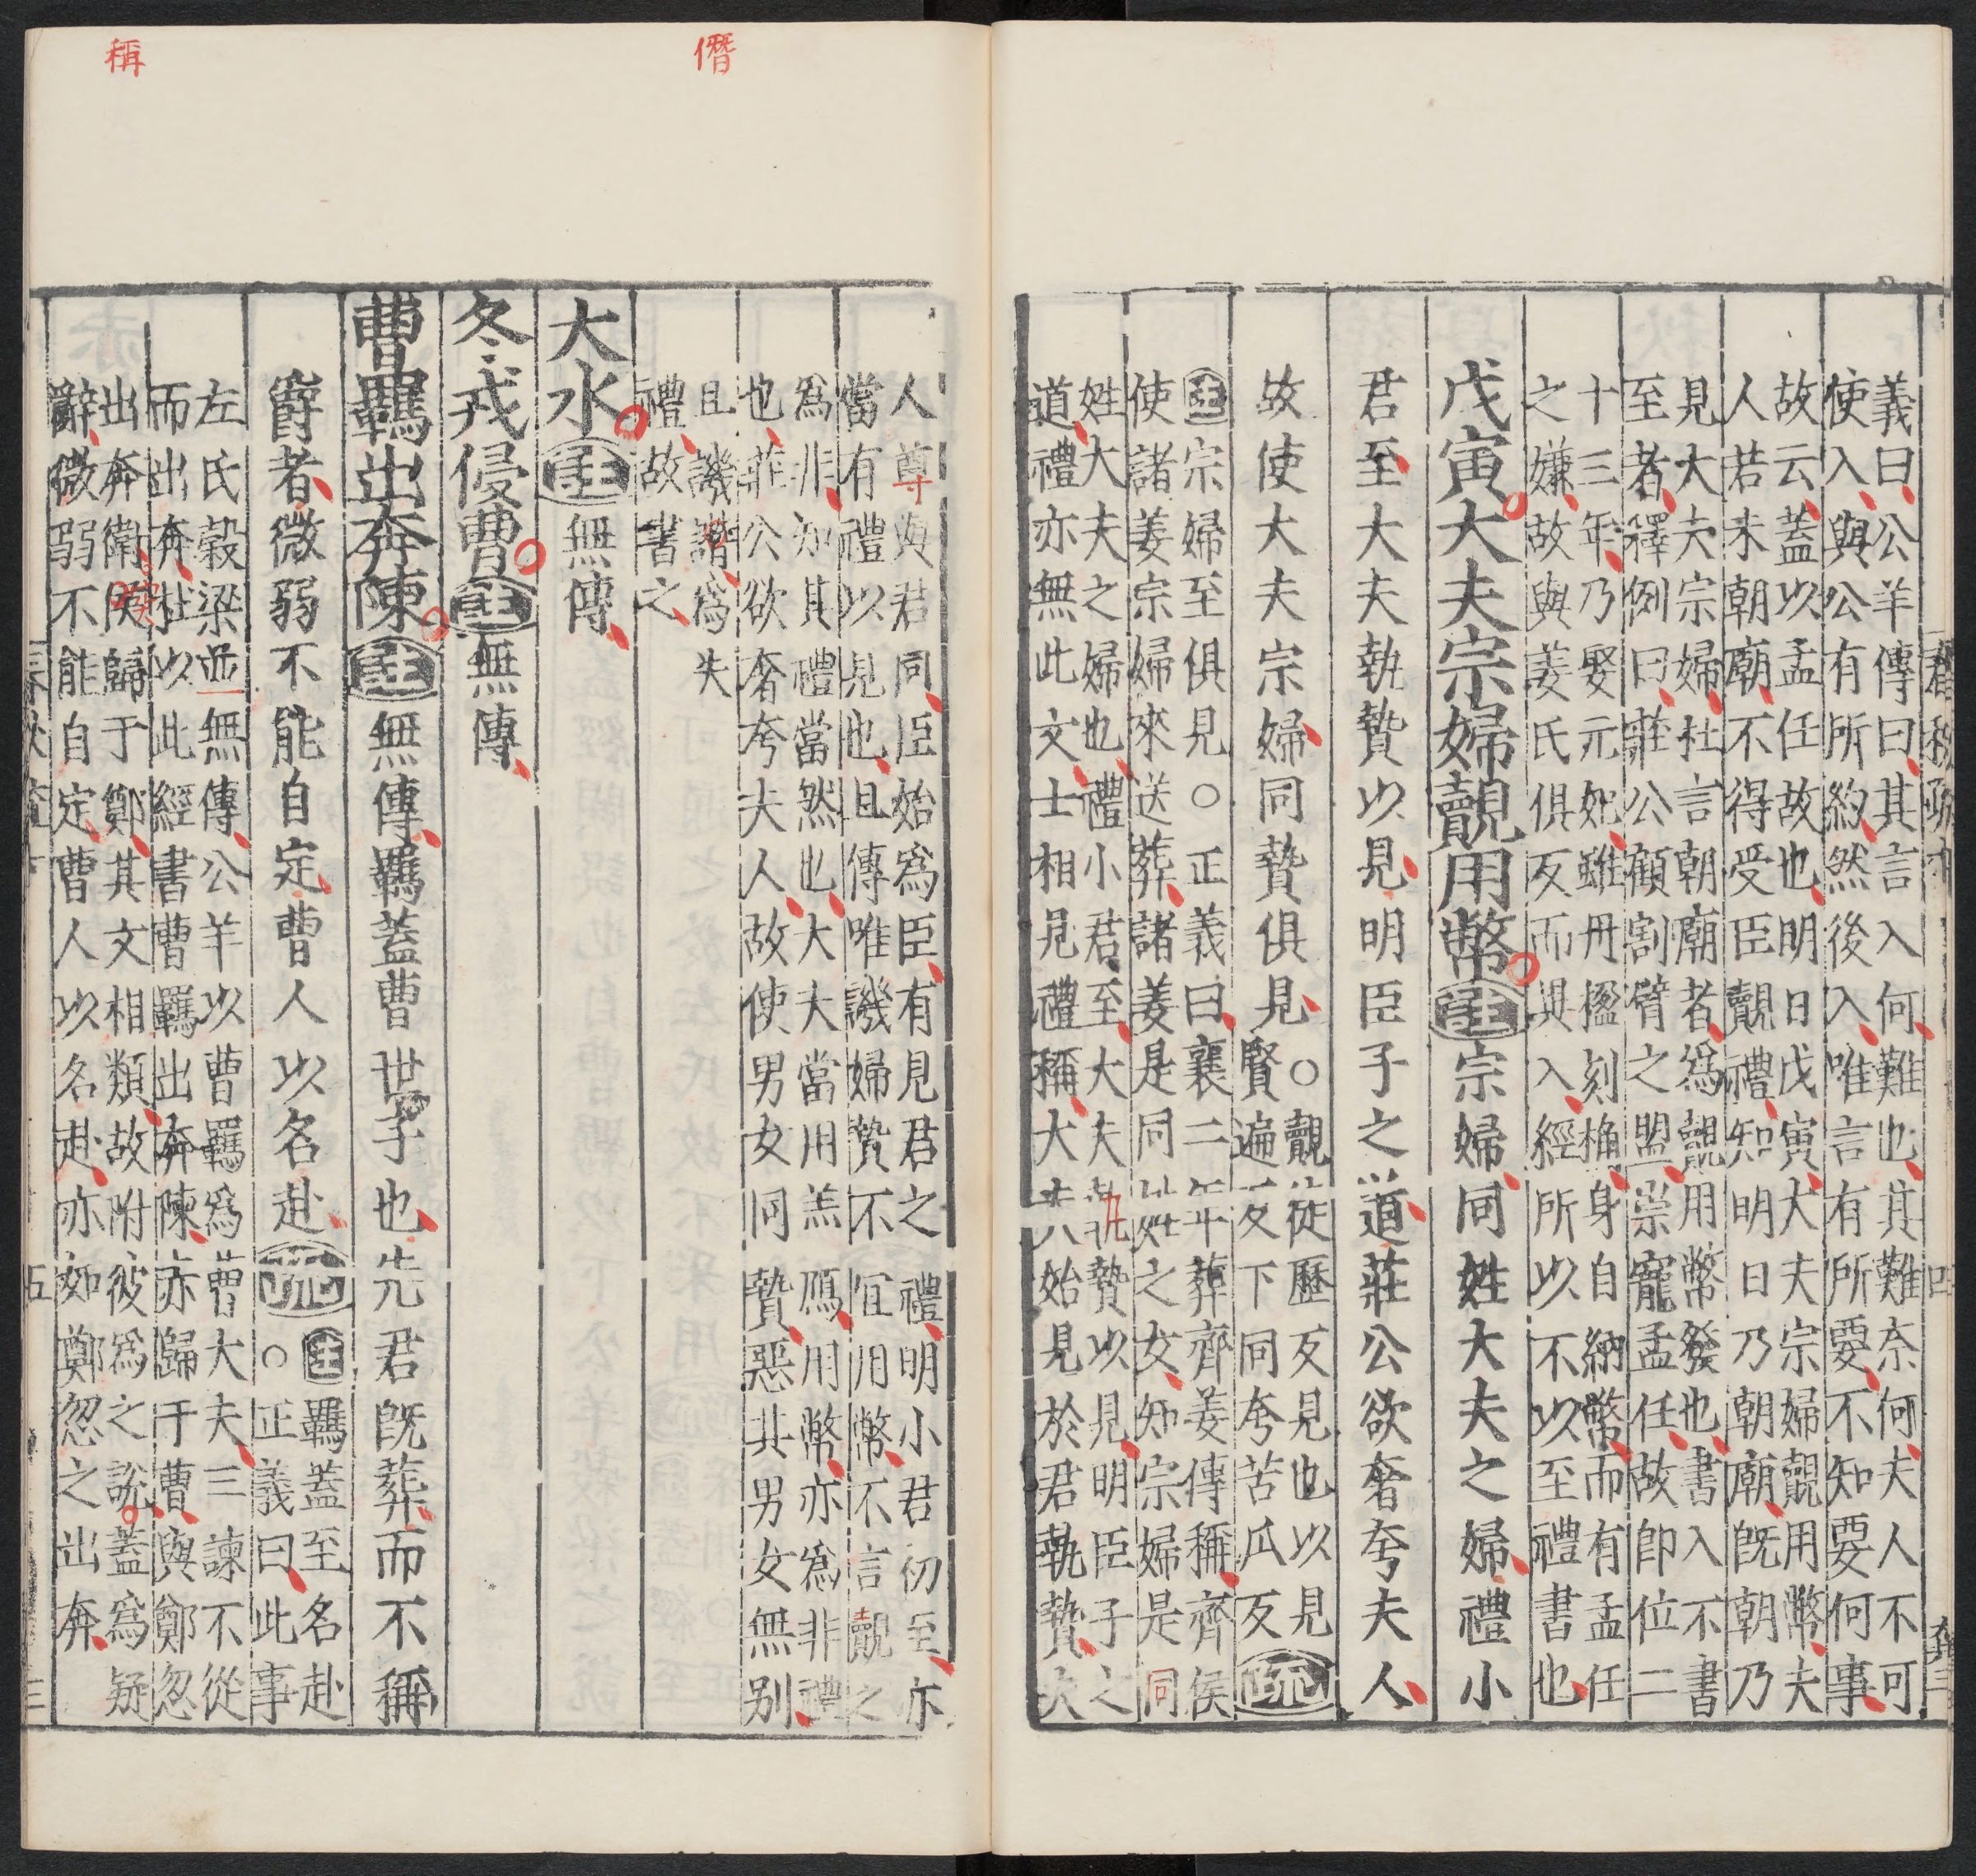 義曰公羊傳曰其言入何難也其難奈何夫人不可
使入與公有所約然後入唯言有所要不知要何事
故云蓋以孟任故也明日戊寅大夫宗婦覿用幣夫
人若未朝廟不得受臣覿禮知明日乃朝廟旣朝乃
見大夫宗婦杜言朝廟者爲覿用幣發也書入不書
至者釋例曰莊公顧割臂之盟崇寵孟任故卽位二
十三年乃娶元妃雖丹楹刻桷身自納幣而有孟任
之嫌故與姜氏俱反而異入經所以不以至禮書也
戊寅大夫宗婦覿用幣注宗婦同姓大夫之婦禮小
君至大夫執贄以見明臣子之道莊公欲奢夸夫人
故使大夫宗婦同贄俱見○覿徒歷反見也以見
賢遍反下同夸苦瓜反疏
注宗婦至俱見○正義曰襄二年葬齊姜傳稱齊侯
使諸姜宗婦來送葬諸姜是同姓之女知宗婦是同
姓大夫之婦也禮小君至大夫執贄以見明臣子之
道禮亦無此文士相見禮稱大夫始見於君執贄夫
僭
稱
人尊與君同臣始爲臣有見君之禮明小君初至亦
當有禮以見也且傳唯譏婦贄不宜用幣不言覿之
爲非知其禮當然也大夫當用羔鴈用幣亦爲非禮
也莊公欲奢夸夫人故使男女同贄惡其男女無别
且譏譖爲失
禮故書之
大水注無傳
冬戎侵曹注無傳
曹羈出奔陳注無傳羈蓋曹世子也先君旣葬而不稱
爵者微弱不能自定曹人以名赴疏注羈蓋至名赴
○正義曰此事
左氏穀梁並無傳公羊以曹羈爲曹大夫三諫不從
而出奔杜以此經書曹羈出奔陳亦歸于曹與鄭忽
出奔衛侯歸于鄭其文相類故附彼爲之說蓋爲疑
辭微弱不能自定曹人以名赴亦如鄭忽之出奔